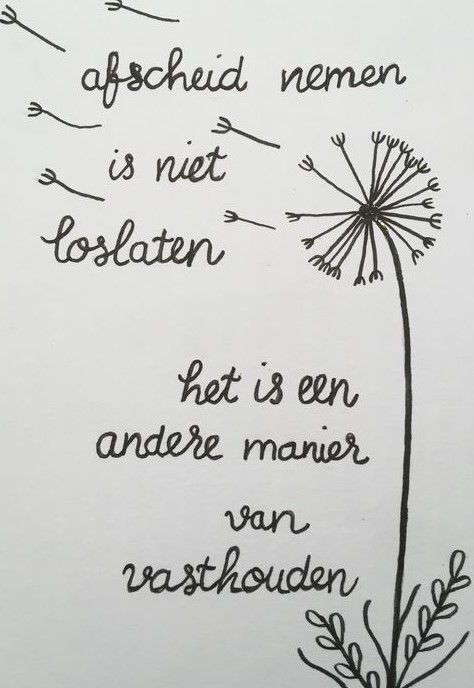 afscheid nemen
is niet
loslaten
het is een
andere manier
van
vasthouden